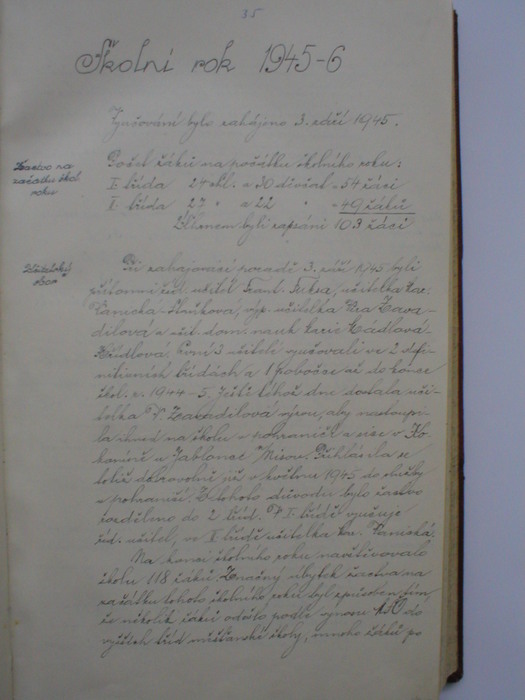 35
Školní rok 1945-6
Vyučování bylo zahájeno 3. září 1945.
Žactvo na
začátku škol.
roku
Počet žáků na počátku školního roku:
I. třída 24 chl. a 30 děvčat = 54 žáci
II. třída 27 " a 22 " = 49 žáků
Úhrnem byli zapsáni 103 žáci
Učitelský
sbor
Při zahajovací poradě 3. září 1945 byli
přítomni říd. učitel Frant. Fiksa, učitelka Kar.
Vanická, výp. učitelka Věra Zava-
dilová a učit. dom. nauk Marie Čáslavá
První 3 učitelé vyučovali ve 2 defi-
nitivních třídách a 1 pobočce až do konce
škol. r. 1944-5. Ještě téhož dne dostala uči-
telka V. Zavadilová výnos, aby nastoupi-
la ihned na školu v pohraničí a sice v
u Jablonce Nisou. Přihlásila se
totiž dobrovolně již v květnu 1945 do služby
v pohraničí. Z tohoto důvodu bylo žactvo
rozděleno do 2 tříd. V I. třídě vyučuje
říd. učitel, ve II. třídě učitelka Kar. Vanická.
Na konci školního roku navštěvovalo
školu 118 žáků. Značný úbytek žactva na
začátku tohoto školního roku byl způsoben tím
že několik žáků odešlo podle výnosu do
vyšších tříd měšťanské školy, mnoho žáků po